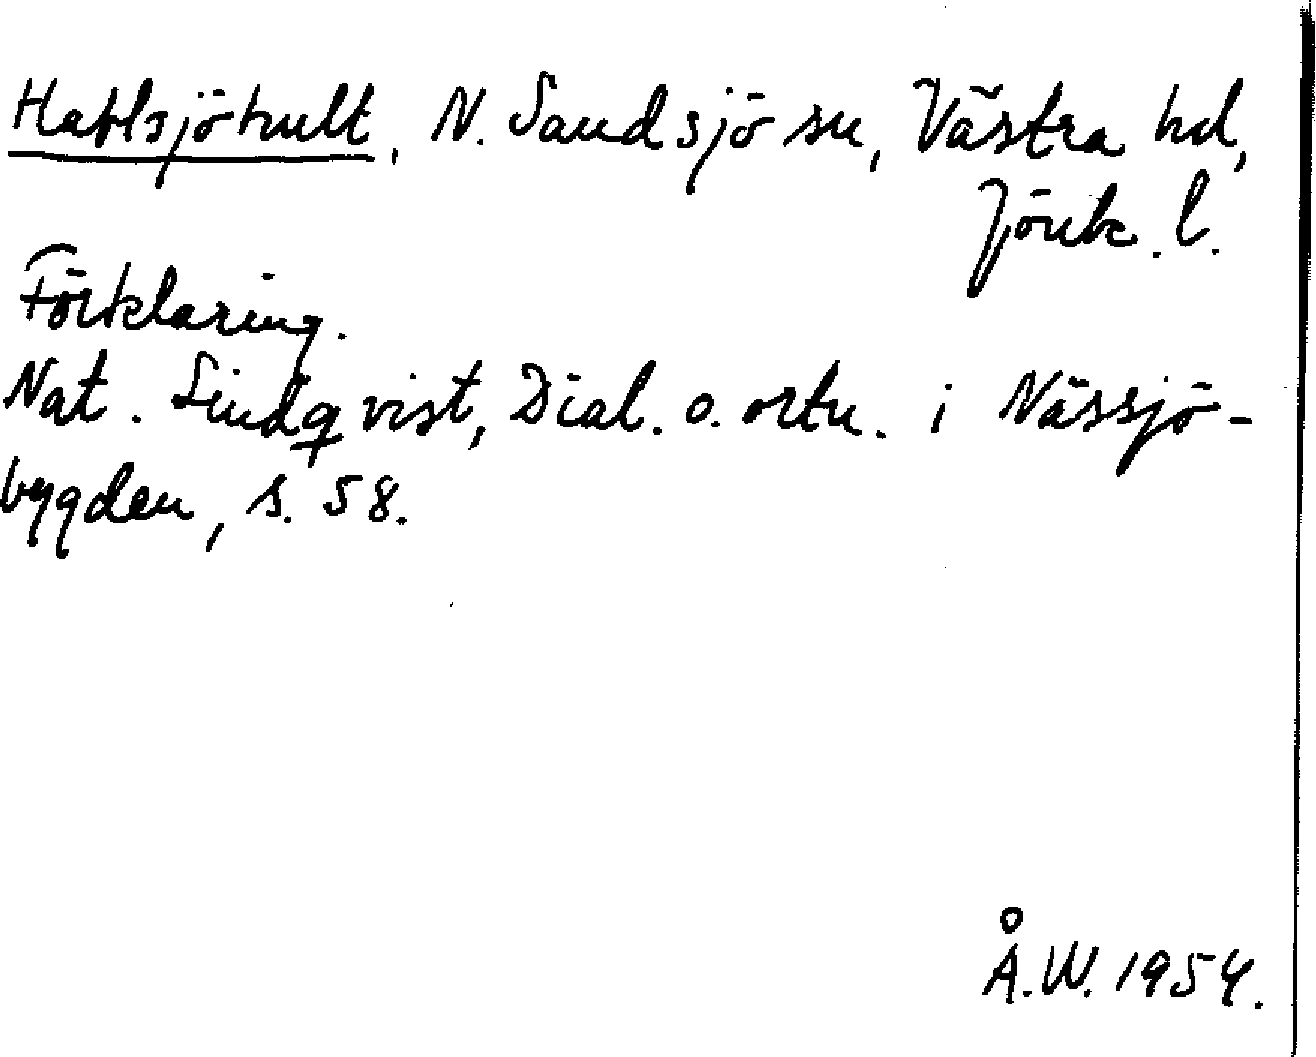 Hattsjöhult, N. Sandsjö sn, Västra hd,
Jönk. l.
Förklaring.
Nat. Lindqvist, Dial. o. ortn. i Nässjö-
bygden, s. 58.
Å.W. 1954.